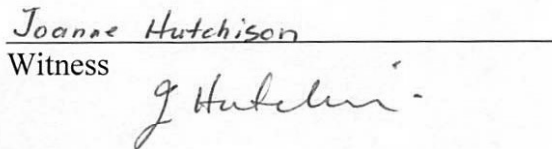 Joanne Hutchison
Witness
J Hutchison